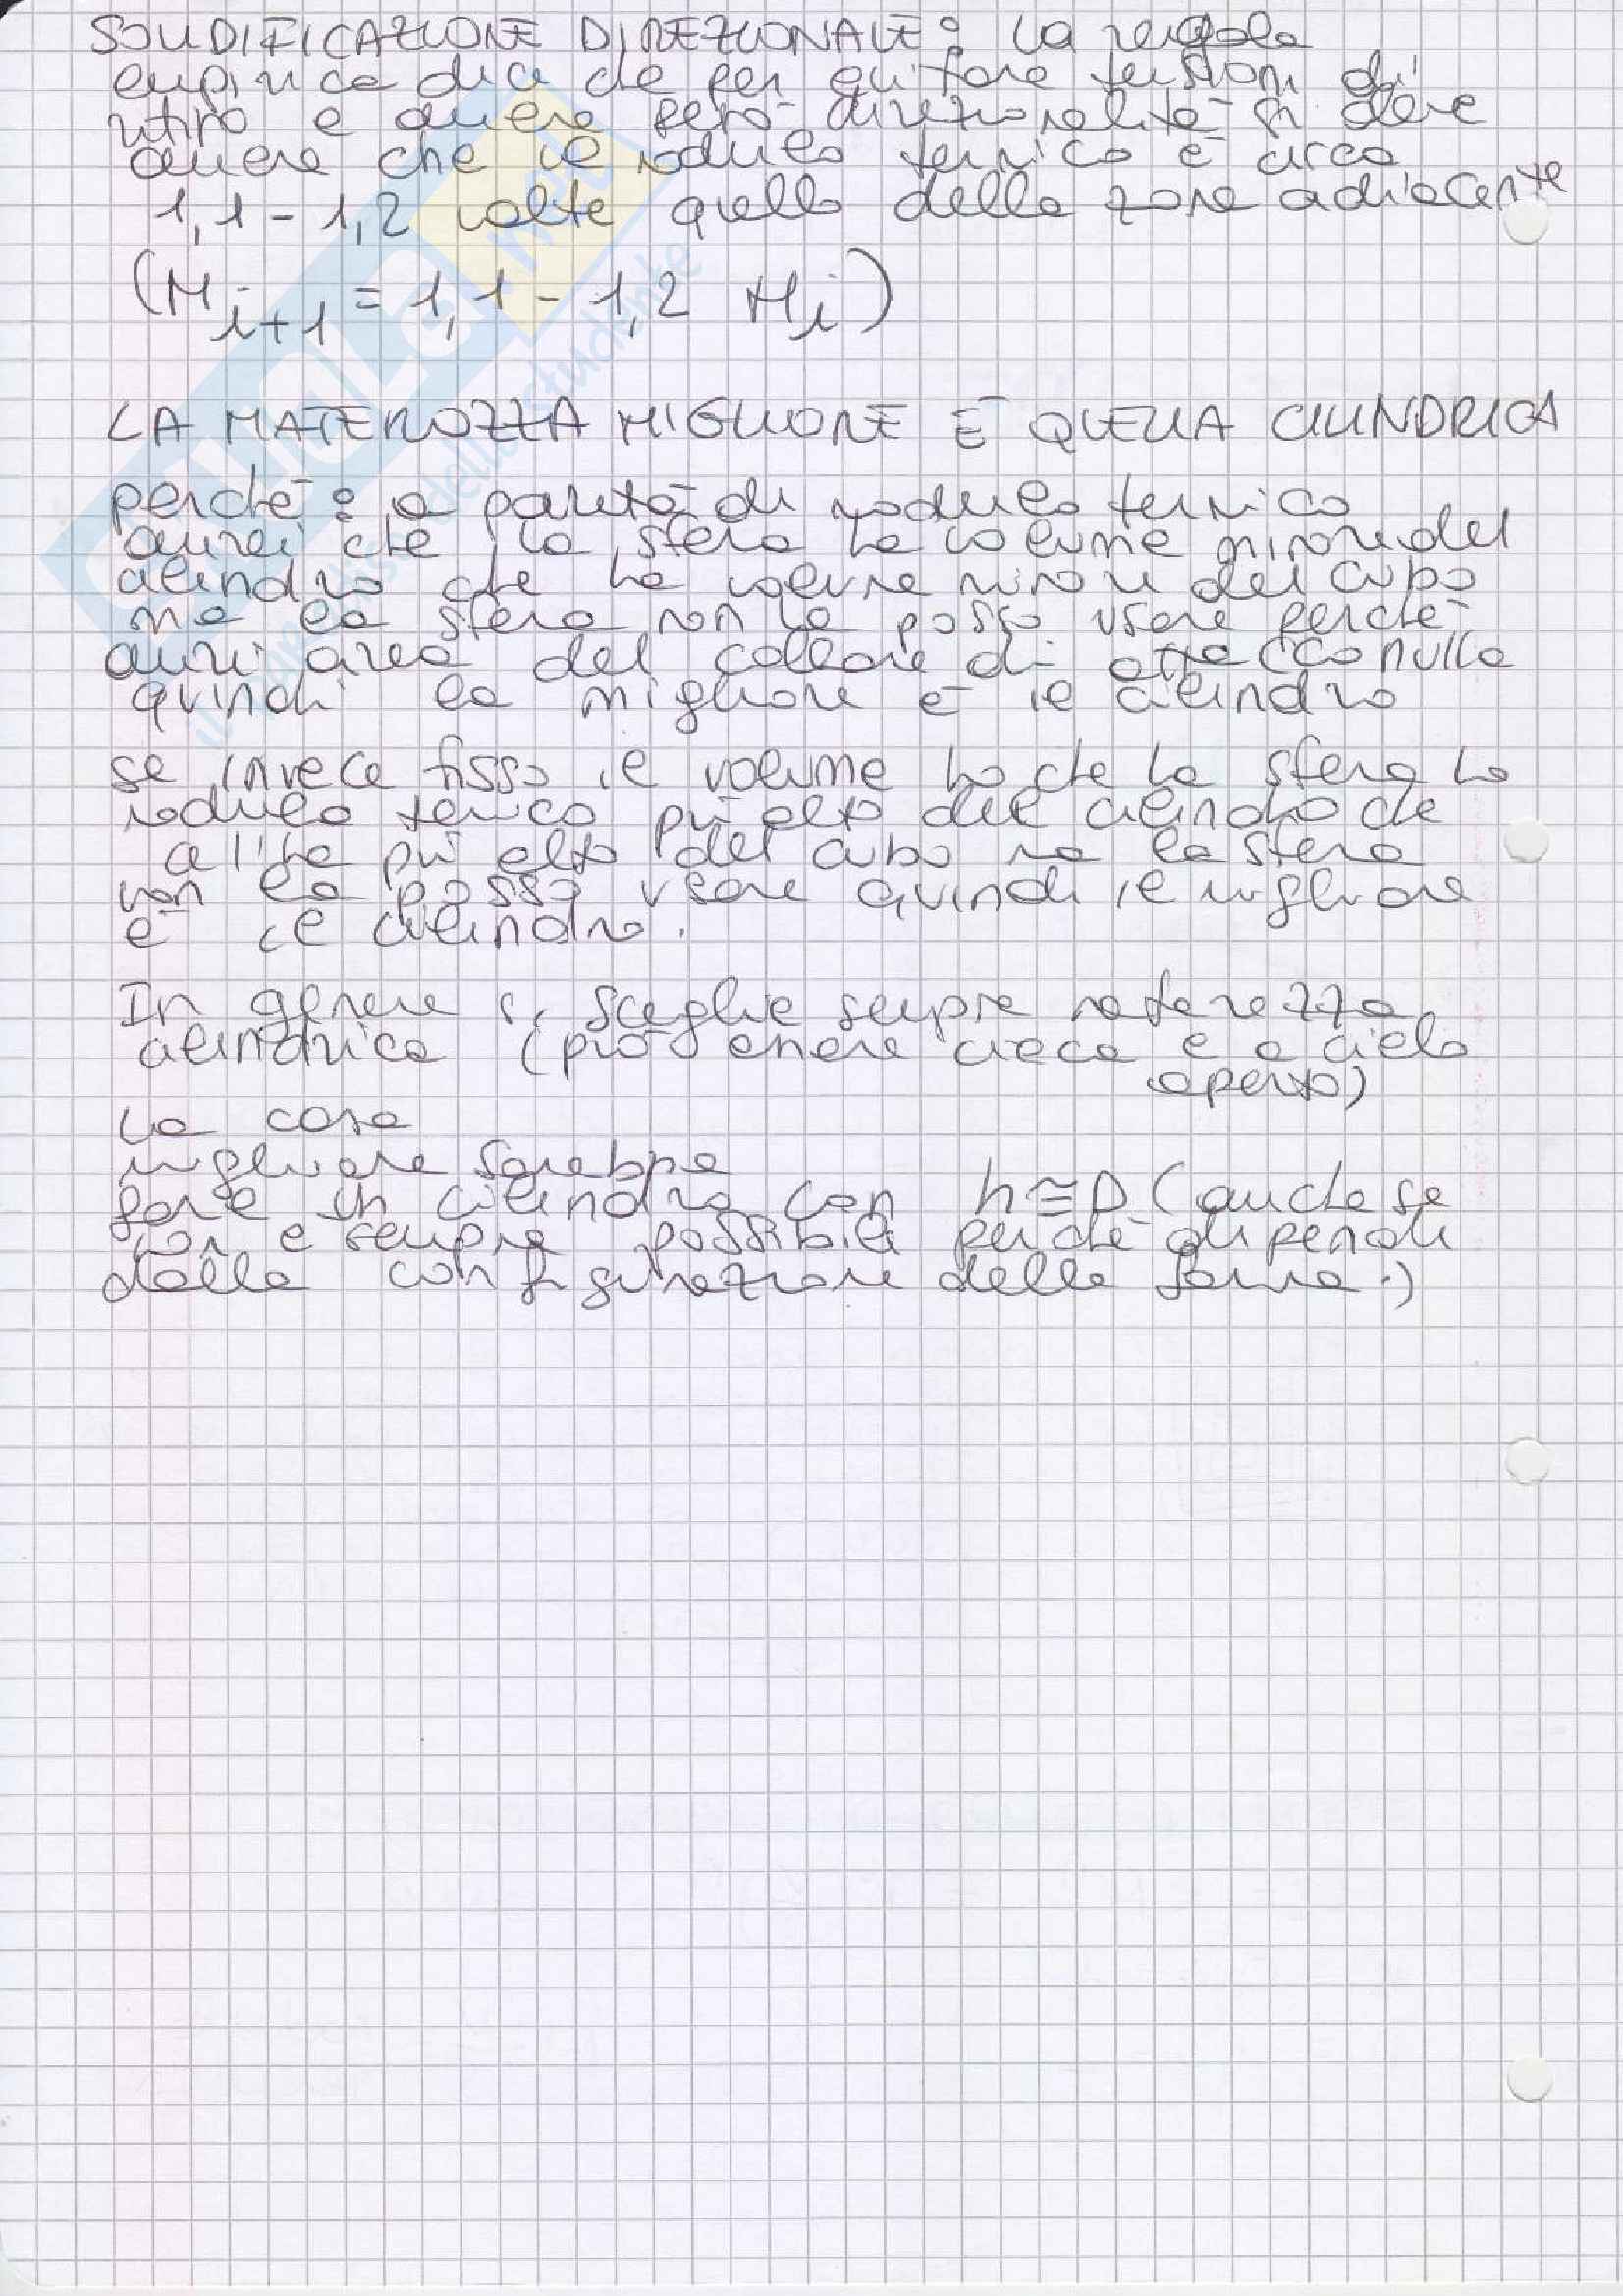 SOLIDIFICAZIONE DIREZIONALE: La regola
empirica dice che per evitare tensioni di
ritiro e avere però direzionalità si deve
avere che il modulo termico è circa
1,1 - 1,2 volte quello della zona adiacente
(M i+1 = 1,1 - 1,2 M i)
LA MATEROZZA MIGLIORE È QUELLA CILINDRICA
perché: a parità di modulo termico
avrei che la sfera ha volume minore del
cilindro che ha volume minore del cubo
ma la sfera non la posso usare perché
avrei area del collare di attacco nulla
quindi la migliore è il cilindro
se invece fisso il volume ho che la sfera ha
modulo termico più alto del cilindro che
ce l'ha più alto del cubo ma la sfera
non la posso usare quindi il migliore
è il cilindro.
In genere si sceglie sempre materozza
cilindrica (può essere cieca e a cielo
aperto)
La cosa
migliore sarebbe
fare un cilindro con h≅D (anche se
non è sempre possibile perché dipende
dalla configurazione della forma.)